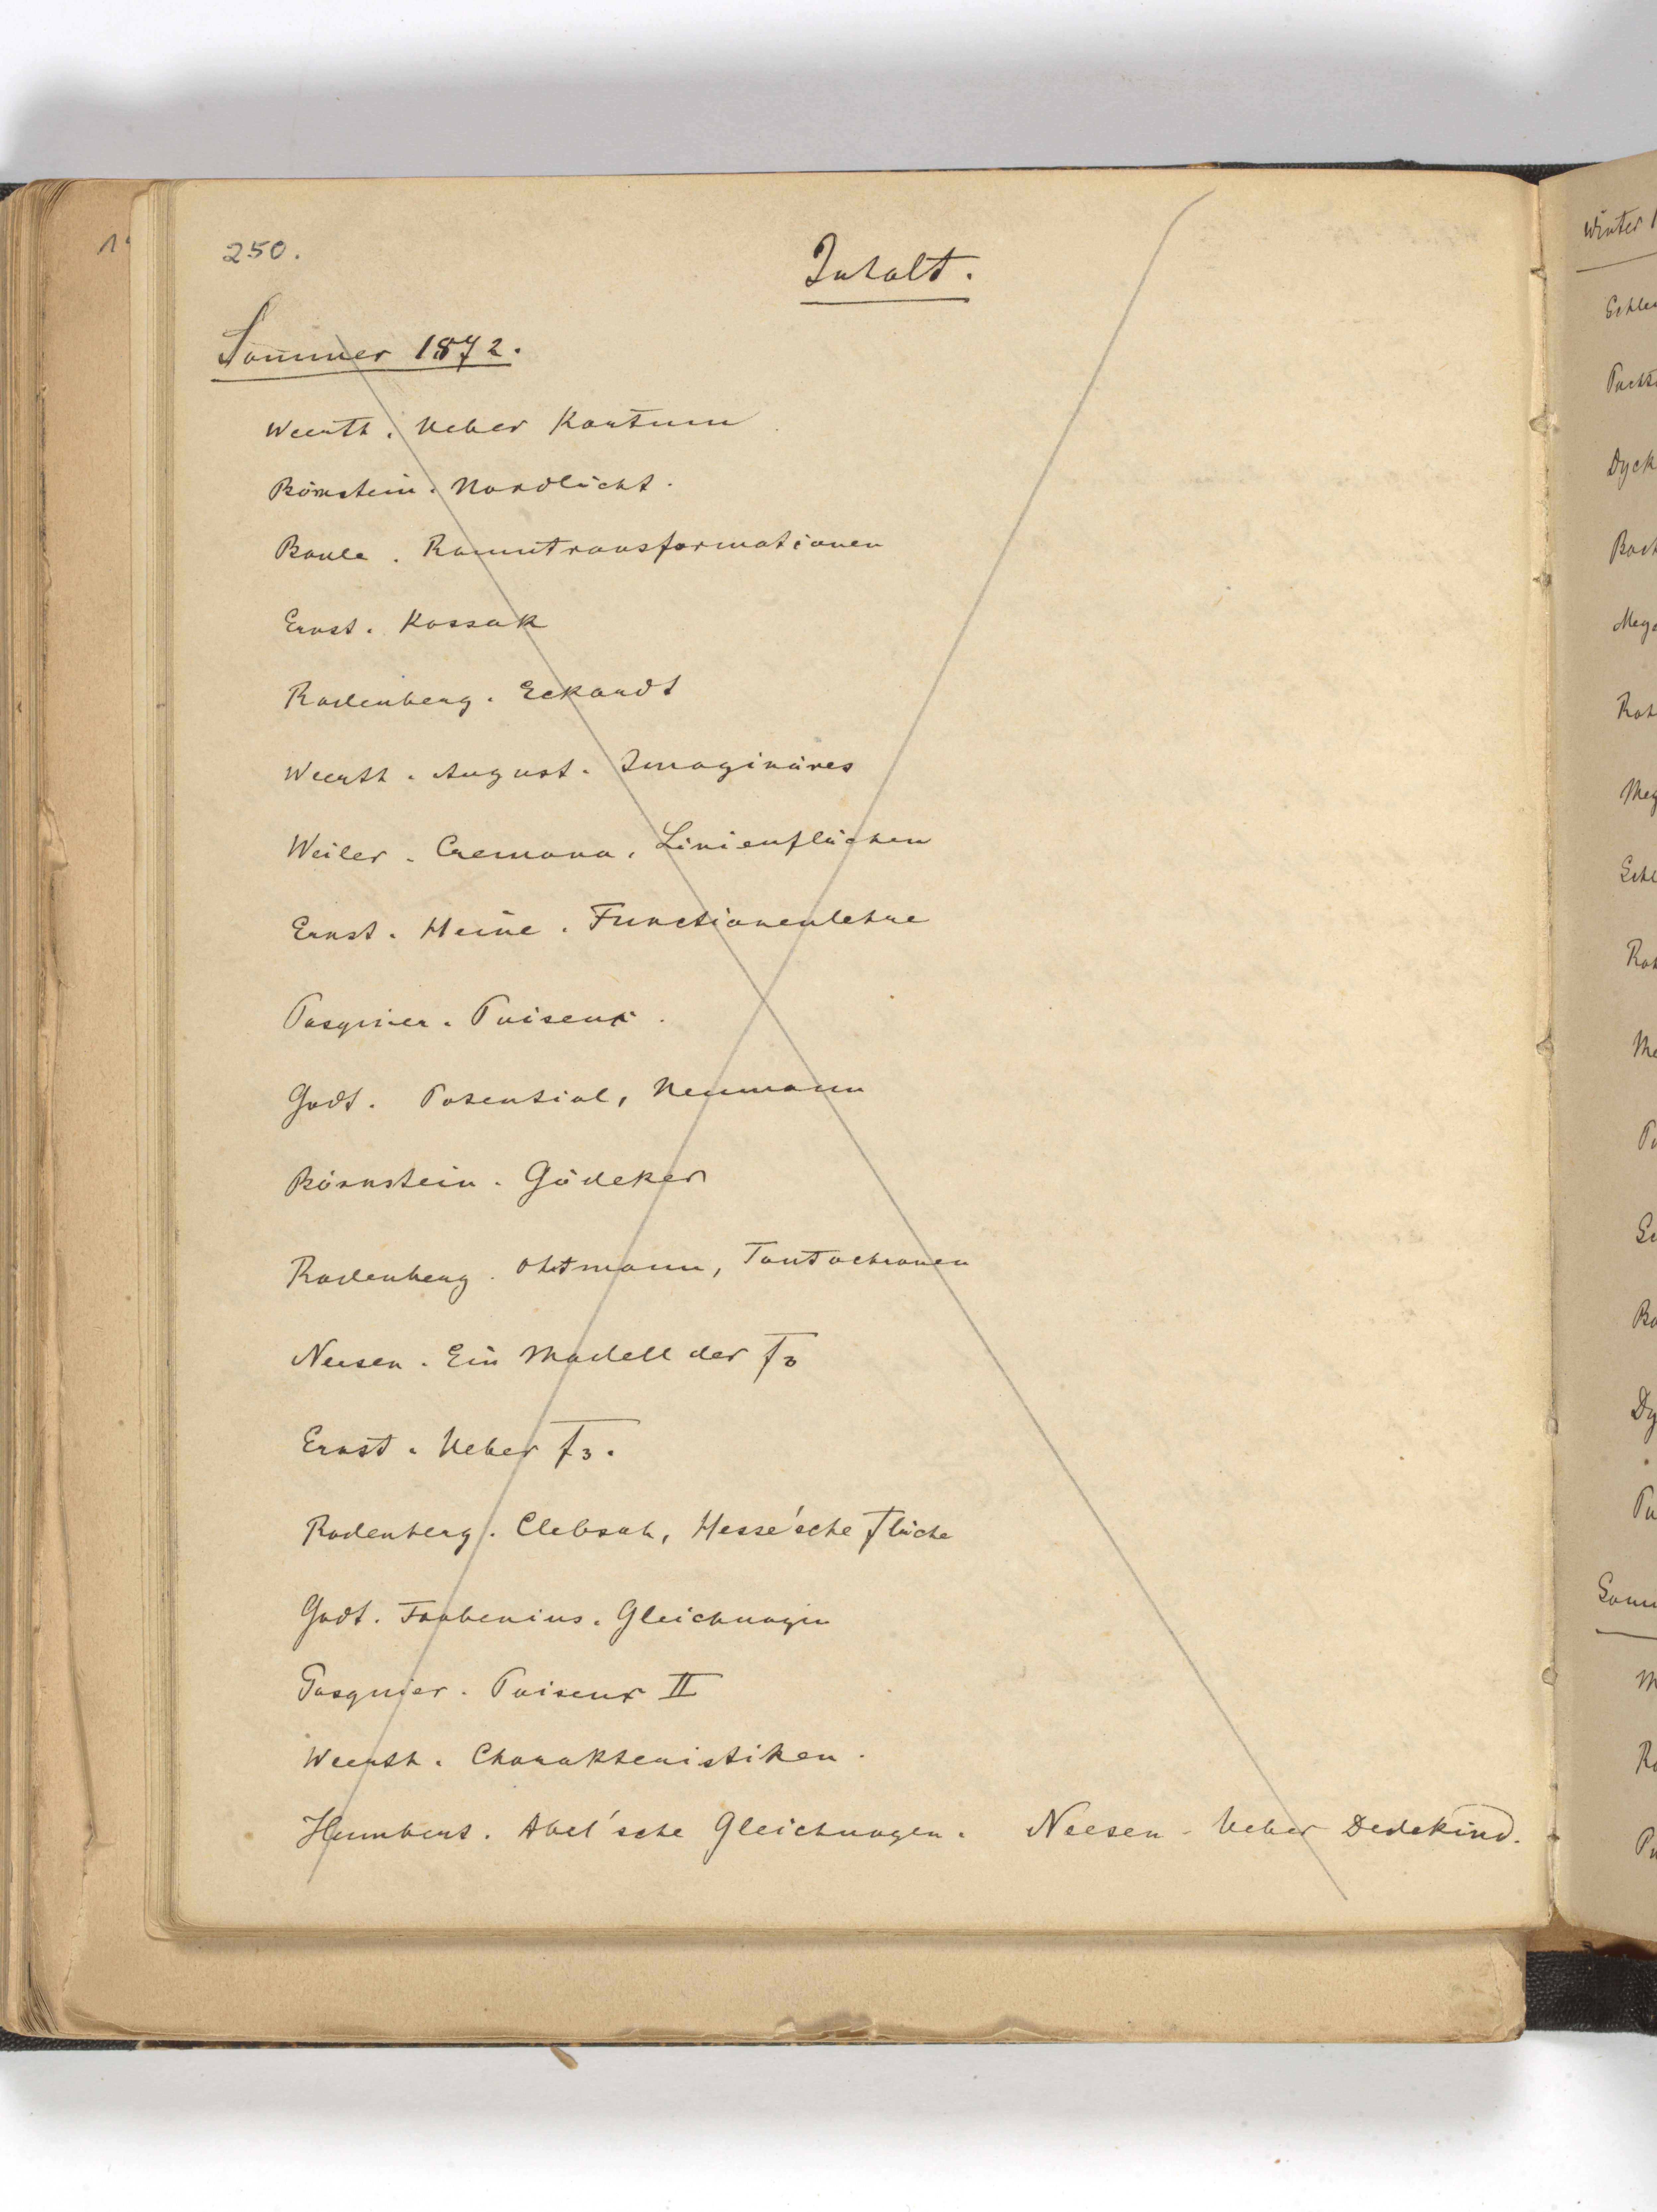 250.
Inhalt.
Sommer 1872.
Weerth. Ueber Kartum
Börnstein. Nordlicht.
Baule. Raumtransformationen
Ernst. Kossak
Rodenberg. Eckardt
Weerth. August. Imaginäres
Weiler. Cremona, Linienflächen
Ernst. Heine. Functionenlehre
Pasquier. Puiseux.
Godt. Potential, Neumann
Börnstein. Gödeker
Rodenberg. Ohrtmann, Tautochronen
Neesen. Ein Modell der F3
Ernst. Ueber F3.
Rodenberg. Clebsch, Hesse'sche Fläche
Godt. Frobenius. Gleichungen
Pasquier. Puiseux II
Weerth. Charakteristiken.
Humbert. Abel'sche Gleichungen. Neesen - Ueber Dedekind.
Winter 1
Dyck
Dy